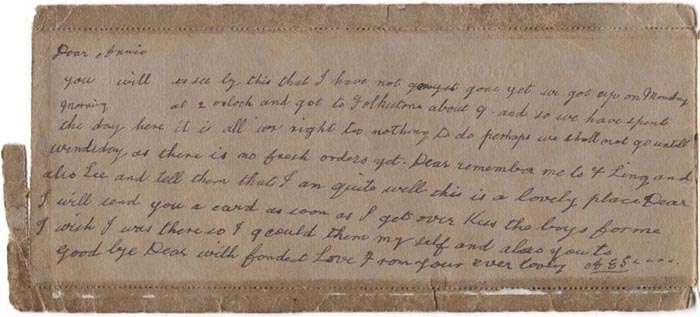 Dear Annie
you will see by this that I have not gone yet we got up on Monday
morning at 2 oclock and got to Folkestone about 9. and so we have spent
the day here it is all right too nothing to do perhaps we shall not go untill
wendsday as there is no fresh orders yet. Dear remember me to Ling and
also Lee and tell them that I am quite well this is a lovely place Dear
I will send you a card as soon as I get over Kiss the boys for me
I wish I was there so I could them my self and also you to
Good bye Dear with fondest Love From your ever loving